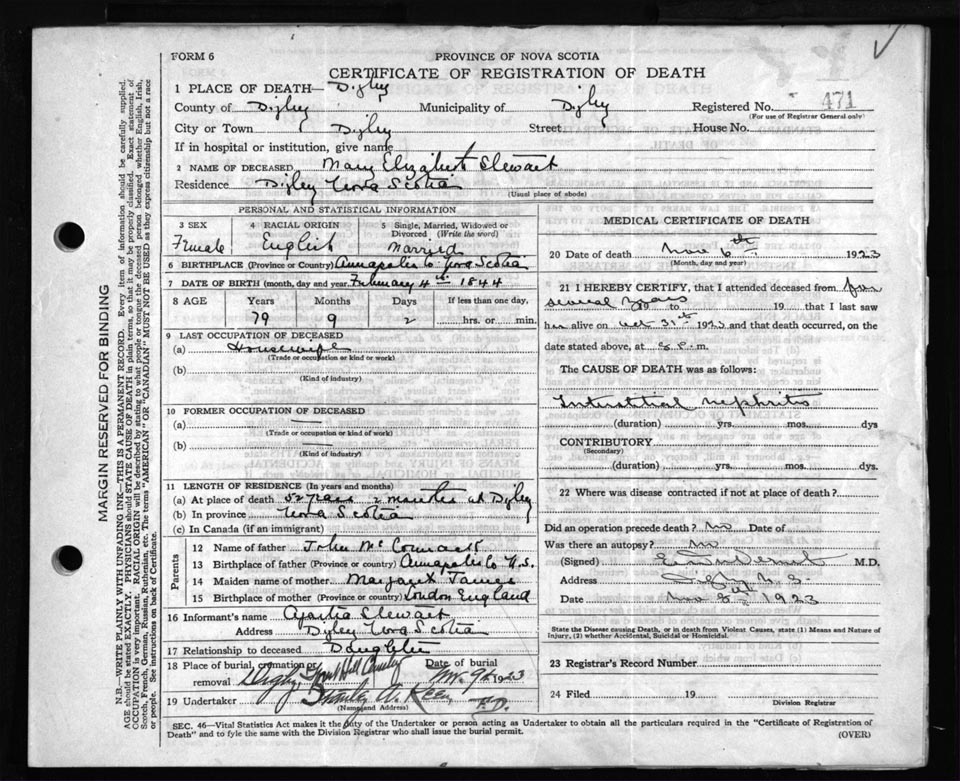 FORM 6
PROVINCE OF NOVA SCOTIA
CERTIFICATE OF REGISTRATION OF DEATH
1 PLACE OF DEATH— Digby
County of Digby Municipality of Digby Registered No. 471
(For use of Registrar General only)
City or Town Digby Street House No.
If in hospital or institution, give name
2 NAME OF DECEASED Mary Elizabeth Stewart
Residence Digby Nova Scotia
(Usual place of abode)
PERSONAL AND STATISTICAL INFORMATION
3 SEX 4 RACIAL ORIGIN 5 Single, Married, Widowed or Divorced (Write the word)
Female English Married
6 BIRTHPLACE (Province or Country) Annapolis Co Nova Scotia
7 DATE OF BIRTH (month, day and year) February 4th 1844
8 AGE Years Months Days If less than one day,
79 9 2 hrs. or min.
9 LAST OCCUPATION OF DECEASED
(a) Housewife
(Trade or occupation or kind of work)
(b)
(Kind of industry)
10 FORMER OCCUPATION OF DECEASED
(a) —
(Trade or occupation or kind of work)
(b) —
(Kind of industry)
11 LENGTH OF RESIDENCE (In years and months)
(a) At place of death 52 years 2 months at Digby
(b) In province Nova Scotia
(c) In Canada (if an immigrant)
Parents
12 Name of father John McCormack
13 Birthplace of father (Province or Country) Annapolis Co N.S.
14 Maiden name of mother Margaret James
15 Birthplace of mother (Province or country) London England
16 Informant's name Stewart
Address Digby Nova Scotia
17 Relationship to deceased Daughter
18 Place of burial, cremation or removal Digby, Hill Date of burial Nov. 9th 1923
19 Undertaker Stanley
(Name and Address)
MEDICAL CERTIFICATE OF DEATH
20 Date of death Nov 6th 1923
(Month, day and year)
21 I HEREBY CERTIFY, that I attended deceased from for
several years 19 to 19 that I last saw
her alive on Oct 31st 1923 and that death occurred, on the
date stated above, at 8 P. m.
The CAUSE OF DEATH was as follows:
Interstitial nephritis
(duration) yrs. mos. dys
CONTRIBUTORY
(Secondary)
(duration) yrs. mos. dys.
22 Where was disease contracted if not at place of death?
Did an operation precede death? no Date of
Was there an autopsy? no
(Signed) M.D.
Address Digby N.S.
Date Nov 8th 1923
State the Disease causing Death, or in death from Violent Causes, state (1) Means and Nature of
Injury, (2) whether Accidental, Suicidal or Homicidal.
23 Registrar's Record Number
24 Filed 19
Division Registrar
SEC. 46—Vital Statistics Act makes it the duty of the Undertaker or person acting as Undertaker to obtain all the particulars required in the "Certificate of Registration of
Death" and to fyle the same with the Division Registrar who shall issue the burial permit.
(OVER)
MARGIN RESERVED FOR BINDING
N.B.—WRITE PLAINLY WITH UNFADING INK—THIS IS A PERMANENT RECORD. Every item of information should be carefully supplied.
AGE should be stated EXACTLY. PHYSICIANS should STATE CAUSE OF DEATH in plain terms, so that it may be properly classified. Exact statement of
OCCUPATION is very important. RACIAL ORIGIN will be described by stating to what people or tongue the deceased person belonged whether English, Irish,
Scotch, French, German, Russian, Ruthenian, etc. The terms "AMERICAN" OR "CANADIAN" MUST NOT BE USED as they express citizenship but not a race
or people. See instructions on back of Certificate.